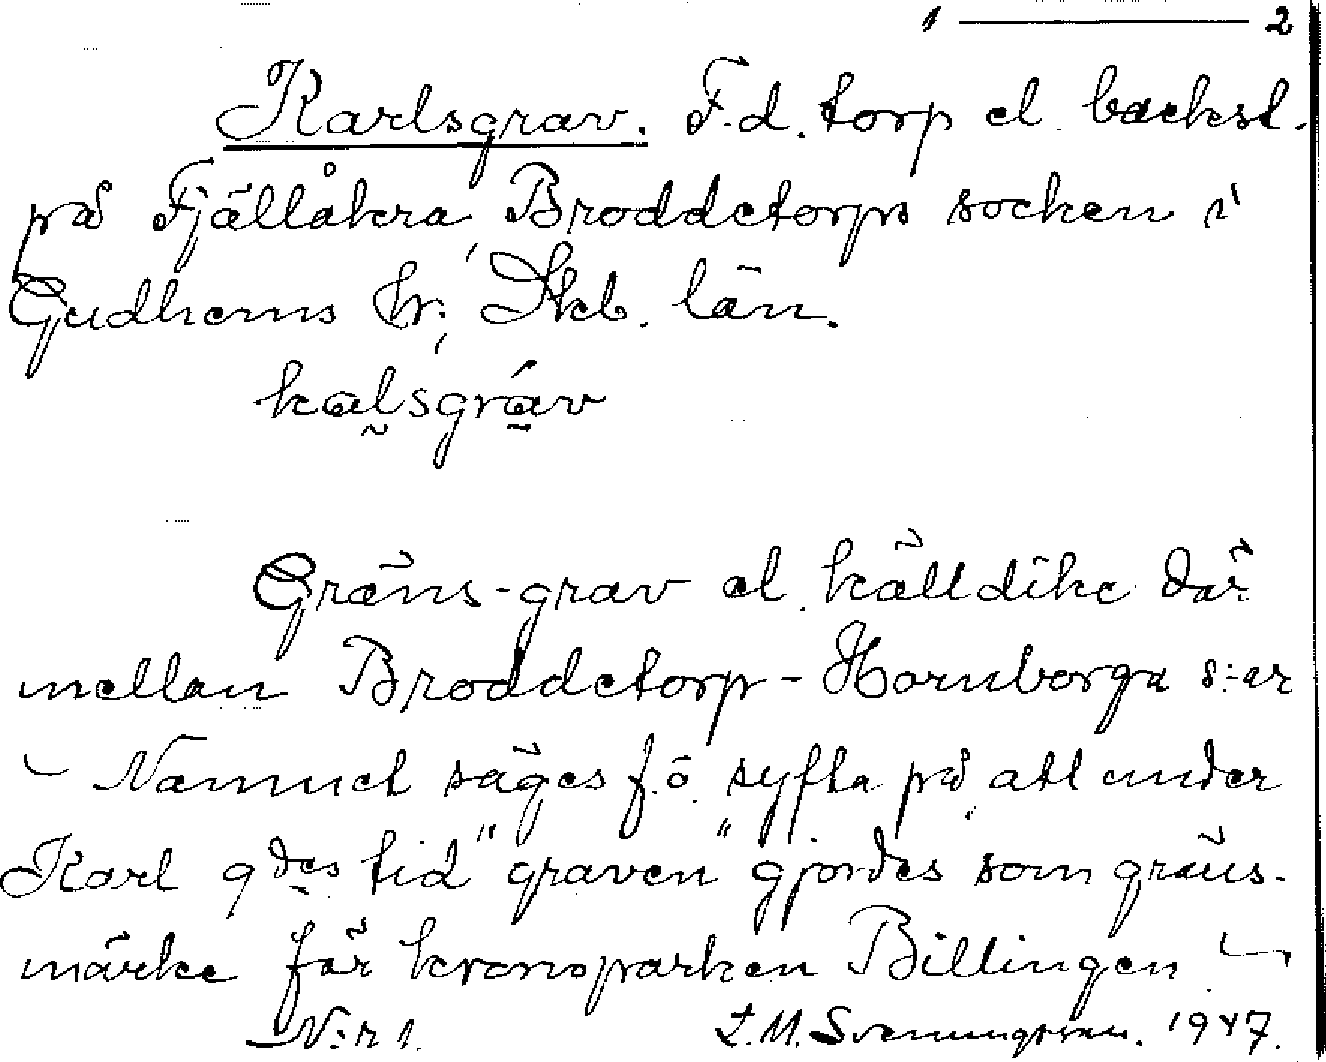 1 — 2
Karlsgrav. F.d. torp el. backst.
på Fjällåkra, Broddetorps socken i
Gudhems hr, Skb. län.
kalsgrav
Gräns-grav el. källdike där
mellan Broddetorp - Hornborga s:ar
~ Namnet säges f.ö. syfta på att under
Karl 9des tid "graven" gjordes som gräns-
märke för kronoparken Billingen ~
N:r 1. L.M. Svenungsson. 1947.